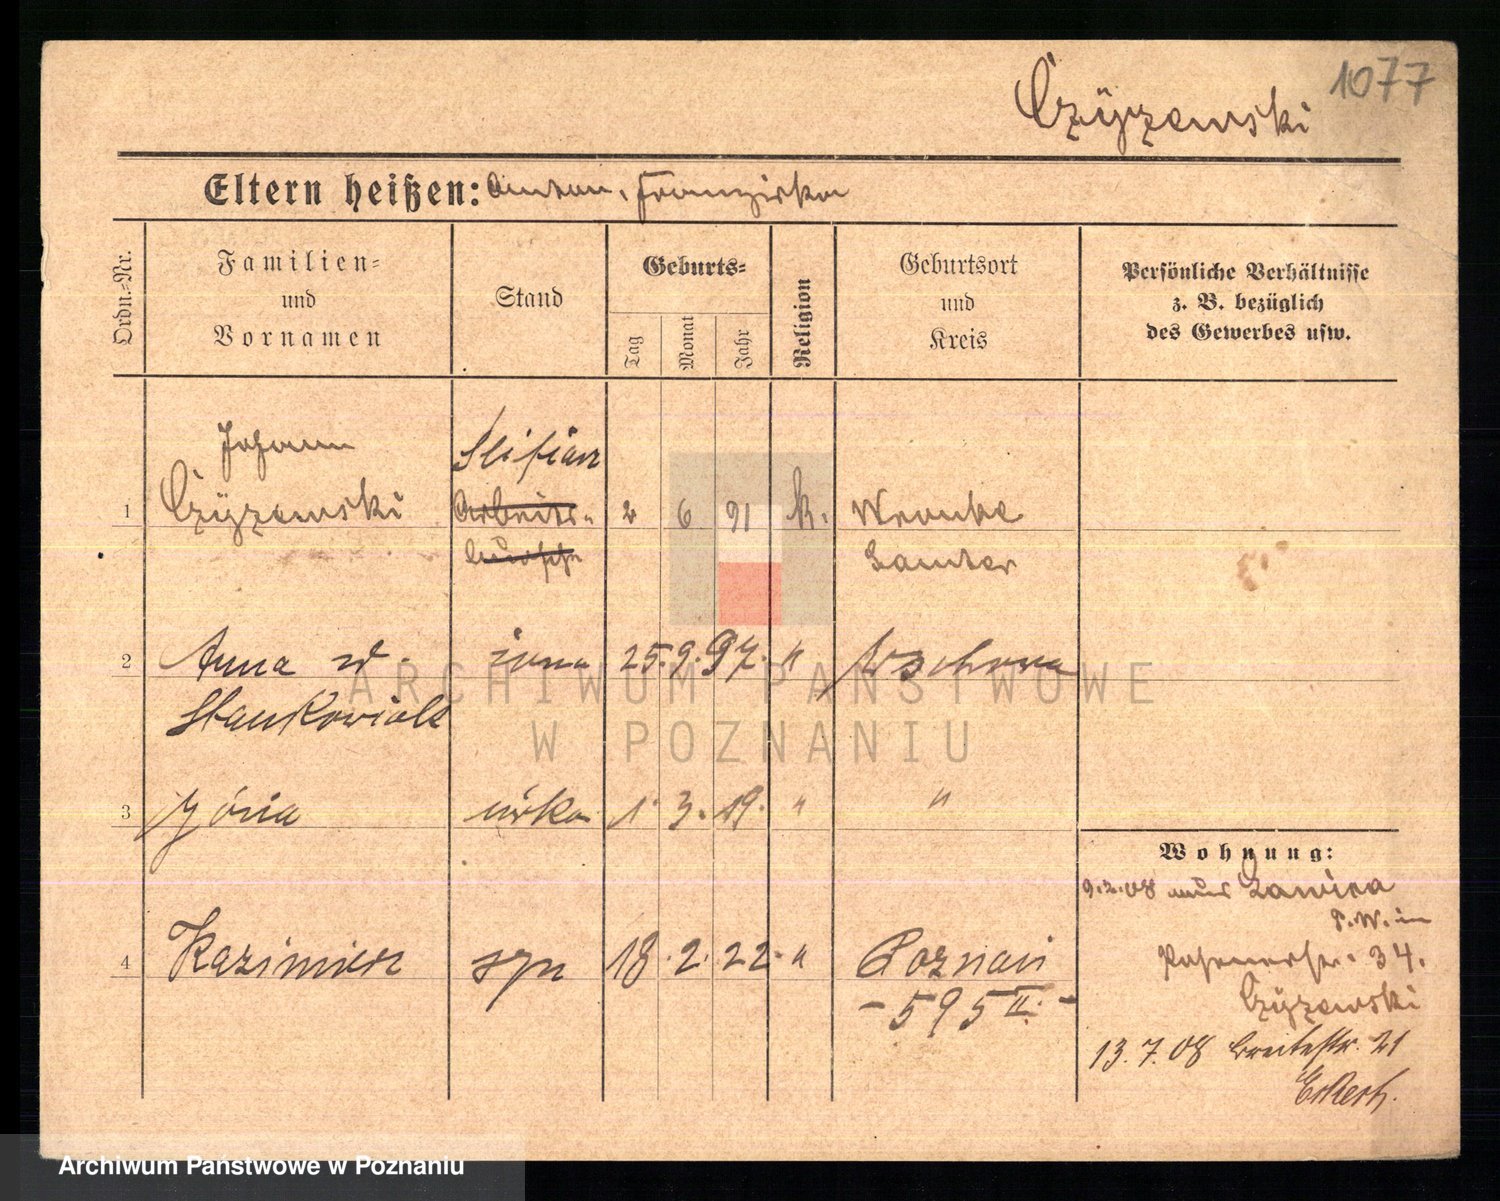 1077
Czÿzewski
Eltern heißen: Anton, Franziska
Ordn.-Nr.
Familien-
und
Vornamen
Stand
Geburts-
Tag
Monat
Jahr
Religion
Geburtsort
und
Kreis
Persönliche Verhältnisse
z. B. bezüglich
des Gewerbes usw.
Johann
1 Czÿzewski Arbeits- 2 6 91 k. Wronke
bursche Samter
2 Anna żona 25. 9. 97. "
Stankowiak
3 córka 1. 3. 19. " "
4 Kazimierz syn 18. 2. 22. " Poznań
- 595 II. -
Wohnung:
9.2.08 aus Zawica
P.W. in
Posenerstr. 34.
Czÿzewski
13.7.08 Breitestr. 21
ARCHIWUM PAŃSTWOWE
W POZNANIU
Archiwum Państwowe w Poznaniu